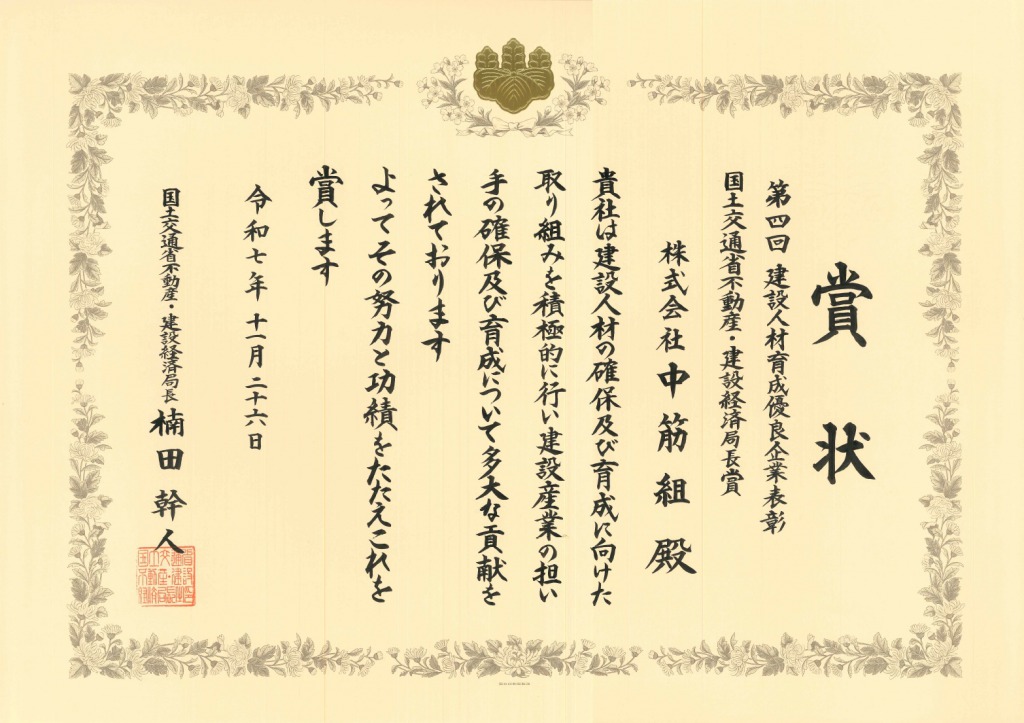 賞状
第四回 建設人材育成優良企業表彰
国土交通省不動産・建設経済局長賞
株式会社中筋組殿
貴社は建設人材の確保及び育成に向けた
取り組みを積極的に行い建設産業の担い
手の確保及び育成について多大な貢献を
されております
よってその努力と功績をたたえこれを
賞します
令和七年十一月二十六日
国土交通省不動産・建設経済局長 楠田幹人